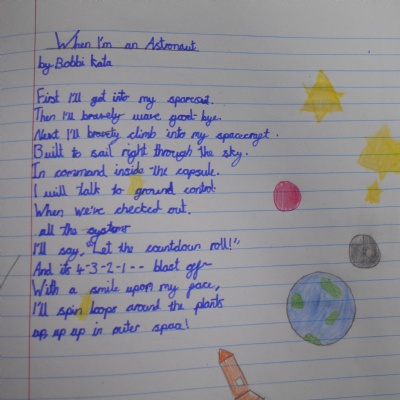 When I'm an Astronaut
by Bobbi Kata
First I'll get into my spacesuit.
Then I'll bravely wave good-bye.
Next I'll bravely climb into my spacecraft.
Built to sail right through the sky.
In command inside the capsule.
I will talk to ground control.
When we've checked out.
all the systems
I'll say, "Let the countdown roll!"
And its 4-3-2-1-- blast off
With a smile upon my pace,
I'll spin loops around the plants
up, up up in outer space!